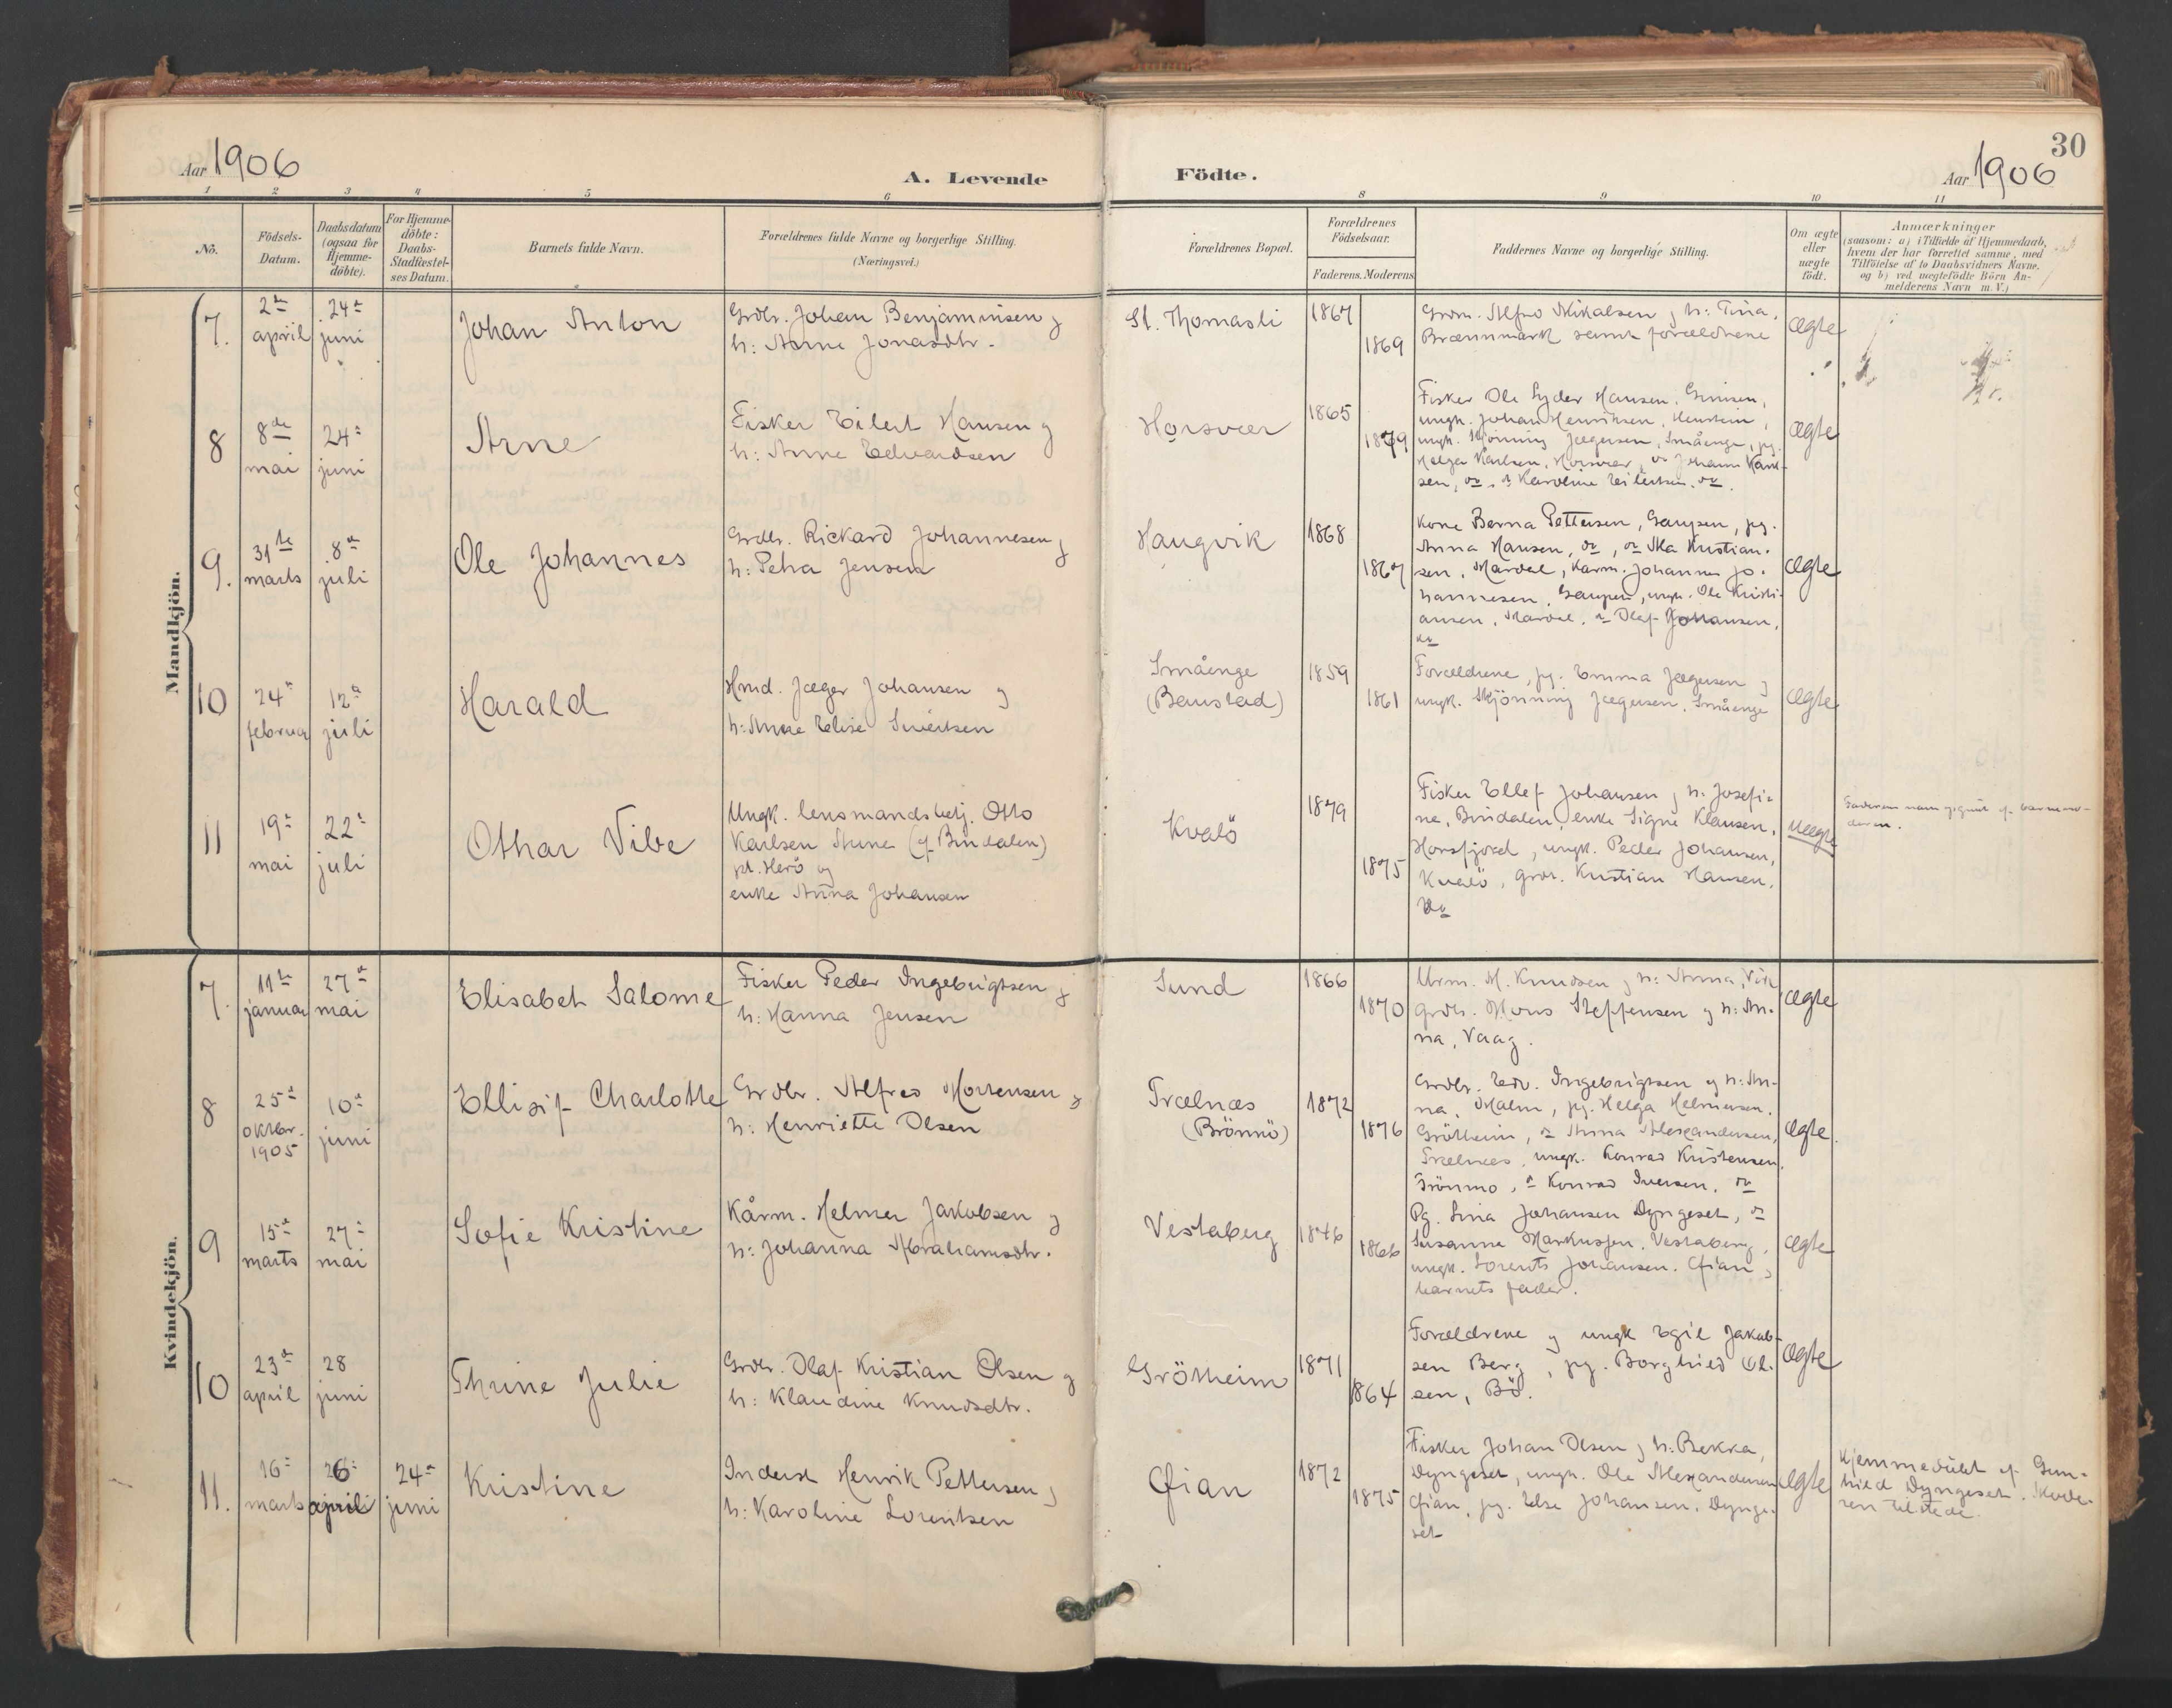 Aar 1906
A. Levende
Födte.
Aar 1906
30
1 2 3 4 5 6 8 9 10 11
No.
Födsels-
Datum.
Daabsdatum
(ogsaa for
Hjemme-
döbte).
For Hjemme-
döbte:
Daabs-
Stadfæstel-
ses Datum.
Barnets fulde Navn.
Forældrenes fulde Navne og borgerlige Stilling.
(Næringsvei.)
Forældrenes Bopæl.
Forældrenes
Födselsaar.
Faderens. Moderens.
Faddernes Navne og borgerlige Stilling.
Om ægte
eller
uægte
födt.
Anmærkninger
(saasom: a) i Tilfælde af Hjemmedaab,
hvem der har forrettet samme, med
Tilföielse af to Daabsvidners Navne.
og b) ved uægtefödte Börn An-
melderens Navn m. V.)
Mandkjön.
7.
2de
april
24de
juni
Johan Anton
Grdbr. Johan Benjaminsen og
h: Anne Jonasdtr.
St. Thomasli
1867
1869
Mikalsen og h: Tina,
Brænnmark samt forældrene
ægte
8
8de
mai
24de
juni
Arne
Fisker Eilert Hansen og
h: Anne Edvardsen
Horsvær
1865
1879
Fisker Ole Lyder Hansen,
ungk. Johan Henriksen,
ungk. Skjönning Jægersen, Småenge, pg.
Helga Karlsen, Horsvær, do Johanna Karl-
sen, do, do Karoline Eilertsen, do.
ægte
9.
31te
marts
8de
juli
Ole Johannes
Grdbr. Rickard Johannesen og
h: Petra Jensen
Haugvik
1868
1867
Kone Berna Pettersen, Gaupen, pg.
Anna Hansen, do, do Kristian-
sen, Mardal, Kårm. Johannes Jo-
hannesen, Gaupen, ungk. Ole Kristi-
ansen, Mardal, do Olaf Johansen,
do
ægte
10
24de
februar
12te
juli
Harald
Hmd. Jæger Johansen og
h: Anne Elise Sivertsen
Småenge
(Baustad)
1859
1861
Forældrene, pg. Emma Jægersen og
ungk. Skjönning Jægersen, Småenge
ægte
11
19de
mai
22de
juli
Othar Vibe
Ungk. lensmandsbetj. Otto
Karlsen (af Bindalen)
pt. Herö og
enke Anna Johansen
Kvalö
1879
1875
Fisker Ellef Johansen og h: Josefi-
ne, Bindalen, enke Signe Klausen,
Horsfjord, ungk. Peder Johansen,
Kvalö, grdr. Kristian Hansen,
do
uægte
Faderens navn opgivet af barnemo-
deren.
Kvindekjön.
7.
11te
januar
27de
mai
Elisabet Salome
Fisker Peder Ingebrigtsen og
h: Hanna Jensen
Sund
1866
1870
Urm. M. Knudsen og h: Anna, Vik
grdbr. Mons Steffensen og h: An-
na, Vaag.
ægte
8
25de
oktbr.
1905
10de
juni
Ellisif Charlotte
Grdbr. Alfred Mortensen og
h: Henriette Olsen
Trælnæs
(Brönnö)
1872
1876
Grdbr. Edv. Ingebrigtsen og h: An-
na, Malm, pg. Helga Helmersen,
Grötheim, do Anna Alexandersen,
Trælnæs, ungk. Konrad Kristensen,
do Konrad Iversen, do
ægte.
9
15de
marts
27de
mai
Sofie Kristine
Kårm. Helmer Jakobsen og
h: Johanna Abrahamsdtr.
Vestaberg
1846
1866
Pg. Lina Johansen Dyngeset, do
Susanna Markussen, Vestaberg,
ungk. Lorents Johansen, Qfian og
barnets fader.
ægte
10
23de
april
28
juni
Thrine Julie
Grdbr. Olaf Kristian Olsen og
h: Klaudine Knudsdtr.
Grötheim
1871
1864
Forældrene og ungk Egil Jakob-
sen Berg, pg. Borghild Ol-
sen, Bö.
ægte
11.
16de
marts
26de
april
24de
juni
Kristine
Inderst Henrik Pettersen og
h: Karoline Lorentsen
Qfian
1872
1875
Fisker Johan Olsen og h: Bekka,
Dyngeset, ungk. Ole Alexandersen
Qfian, pg. Else Johansen, Dynge-
set
ægte
Hjemmedöbt af Gun-
hild Dyngeset. Mode-
ren tilstede.